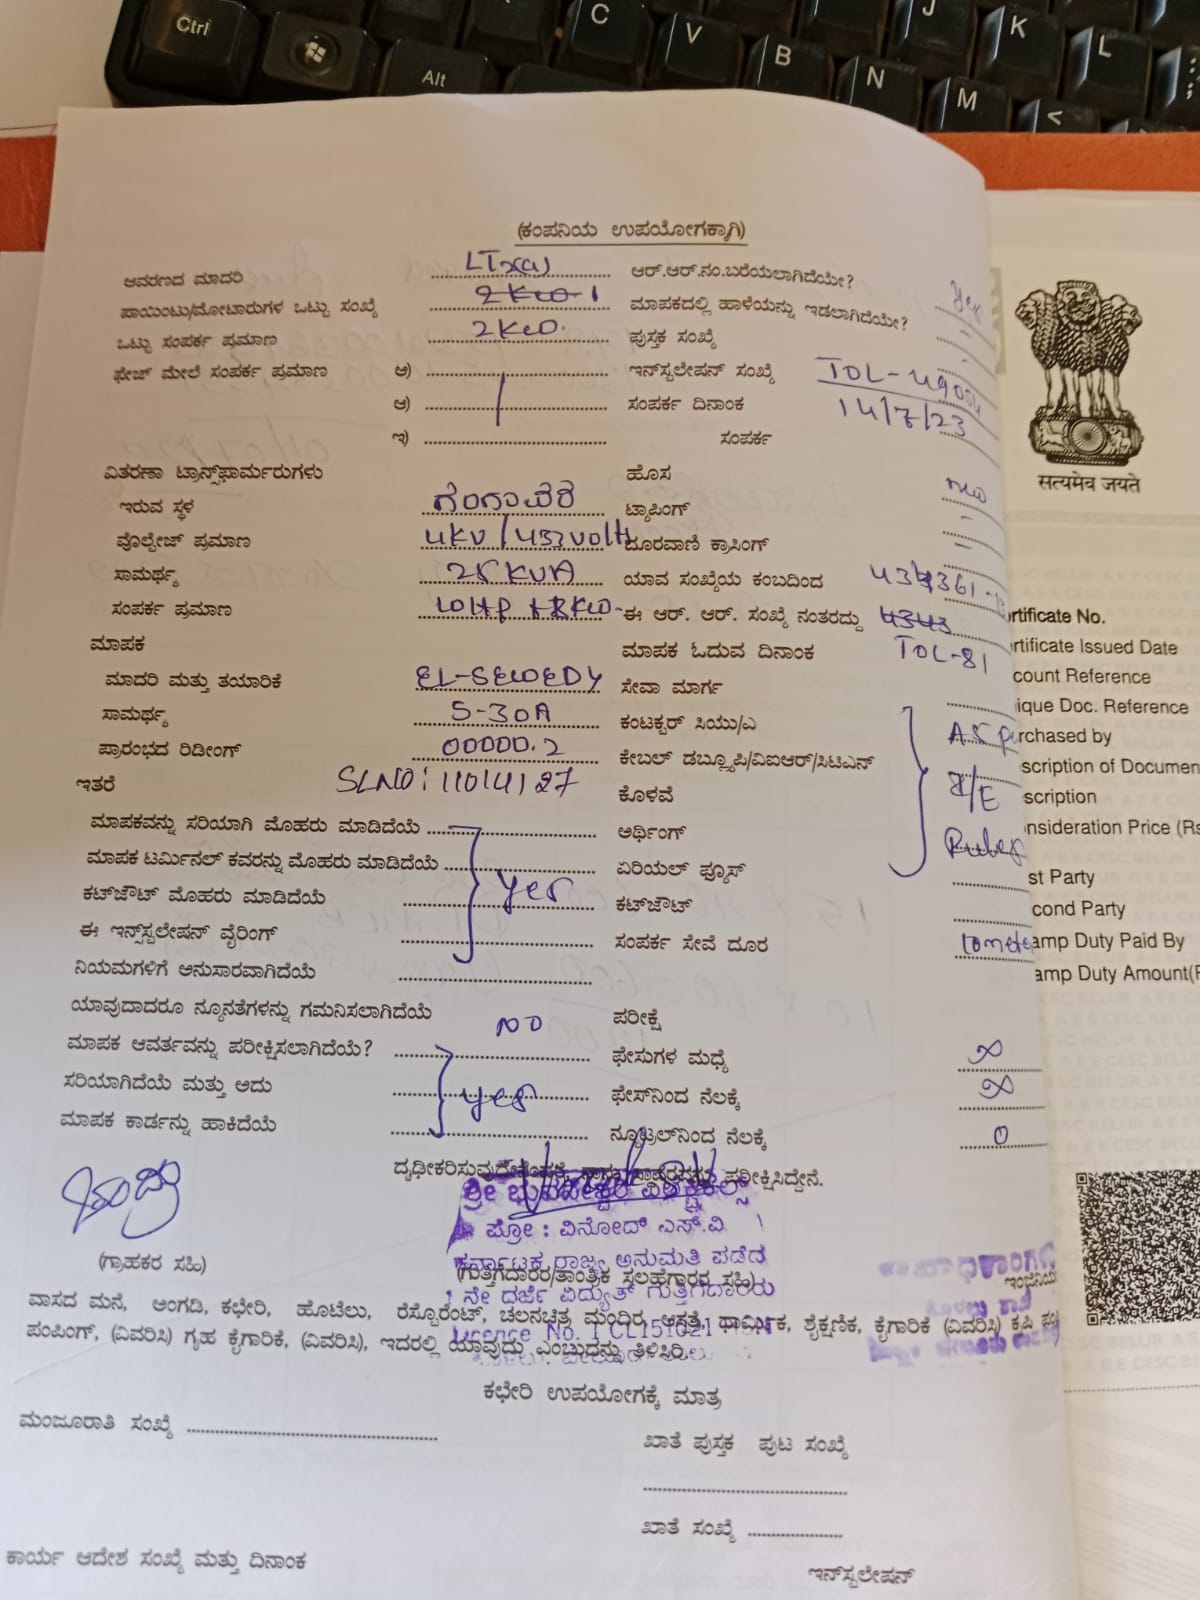 Ctrl
Alt
C
V
B
N
M
J
K
L
<
(ಕಂಪನಿಯ ಉಪಯೋಗಕ್ಕಾಗಿ)
ಆವರಣದ ಮಾದರಿ ಆರ್.ಆರ್.ನಂ.ಬರೆಯಲಾಗಿದೆಯೇ? Yes
ಪಾಯಿಂಟು/ಮೋಟಾರುಗಳ ಒಟ್ಟು ಸಂಖ್ಯೆ ಮಾಪಕದಲ್ಲಿ ಹಾಳೆಯನ್ನು ಇಡಲಾಗಿದೆಯೇ? -
ಒಟ್ಟು ಸಂಪರ್ಕ ಪ್ರಮಾಣ 2KW. ಪುಸ್ತಕ ಸಂಖ್ಯೆ -
ಫೇಜ್ ಮೇಲೆ ಸಂಪರ್ಕ ಪ್ರಮಾಣ ಅ) ಇನ್‌ಸ್ಟಲೇಷನ್ ಸಂಖ್ಯೆ
ಆ) ಸಂಪರ್ಕ ದಿನಾಂಕ 14/7/23
ಇ) ಸಂಪರ್ಕ
ವಿತರಣಾ ಟ್ರಾನ್ಸ್‌ಫಾರ್ಮರುಗಳು ಹೊಸ
ಇರುವ ಸ್ಥಳ ಟ್ಯಾಪಿಂಗ್ -
ವೊಲ್ಟೇಜ್ ಪ್ರಮಾಣ 11KV/433volt ದೂರವಾಣಿ ಕ್ರಾಸಿಂಗ್ -
ಸಾಮರ್ಥ್ಯ 25KVA ಯಾವ ಸಂಖ್ಯೆಯ ಕಂಬದಿಂದ
ಸಂಪರ್ಕ ಪ್ರಮಾಣ ಈ ಆರ್. ಆರ್. ಸಂಖ್ಯೆ ನಂತರದ್ದು
ಮಾಪಕ ಮಾಪಕ ಓದುವ ದಿನಾಂಕ TOL-81
ಮಾದರಿ ಮತ್ತು ತಯಾರಿಕೆ EL-SEWEDY ಸೇವಾ ಮಾರ್ಗ
ಸಾಮರ್ಥ್ಯ 5-30A ಕಂಟಕ್ಟರ್ ಸಿಯು/ಎ
ಪ್ರಾರಂಭದ ರಿಡೀಂಗ್ 00000.2 ಕೇಬಲ್ ಡಬ್ಲ್ಯೂಪಿ/ವಿಐಆರ್/ಸಿಟಿಎನ್
ಇತರೆ SLNO: 11014127 ಕೊಳವೆ
ಮಾಪಕವನ್ನು ಸರಿಯಾಗಿ ಮೊಹರು ಮಾಡಿದೆಯೆ ಅರ್ಥಿಂಗ್
ಮಾಪಕ ಟರ್ಮಿನಲ್ ಕವರನ್ನು ಮೊಹರು ಮಾಡಿದೆಯೆ Yes ಏರಿಯಲ್ ಫ್ಯೂಸ್
ಕಟ್‌ಔಟ್ ಮೊಹರು ಮಾಡಿದೆಯೆ ಕಟ್‌ಔಟ್
ಈ ಇನ್ಸ್‌ಸ್ಟಲೇಷನ್ ವೈರಿಂಗ್ ಸಂಪರ್ಕ ಸೇವೆ ದೂರ
ನಿಯಮಗಳಿಗೆ ಅನುಸಾರವಾಗಿದೆಯೆ
ಯಾವುದಾದರೂ ನ್ಯೂನತೆಗಳನ್ನು ಗಮನಿಸಲಾಗಿದೆಯೆ NO ಪರೀಕ್ಷೆ
ಮಾಪಕ ಆವರ್ತವನ್ನು ಪರೀಕ್ಷಿಸಲಾಗಿದೆಯೆ? ಫೇಸುಗಳ ಮಧ್ಯೆ ∞
ಸರಿಯಾಗಿದೆಯೆ ಮತ್ತು ಅದು Yes ಫೇಸ್‌ನಿಂದ ನೆಲಕ್ಕೆ ∞
ಮಾಪಕ ಕಾರ್ಡನ್ನು ಹಾಕಿದೆಯೆ ನ್ಯೂಟ್ರಲ್‌ನಿಂದ ನೆಲಕ್ಕೆ 0
As per
I/E
Rules
ಪರೀಕ್ಷಿಸಿದ್ದೇನೆ.
ಶ್ರೀ
ಪ್ರೋ : ವಿನೋದ್ ಎಸ್.ವಿ
ಕರ್ನಾಟಕ ರಾಜ್ಯ ಅನುಮತಿ ಪಡೆದ
(ಗ್ರಾಹಕರ ಸಹಿ) (ಗುತ್ತಿಗೆದಾರರ/ತಾಂತ್ರಿಕ ಸಲಹೆಗಾರರ ಸಹಿ)
ನೇ ದರ್ಜೆ ವಿದ್ಯುತ್ ಗುತ್ತಿಗೆದಾರರು
ವಾಸದ ಮನೆ, ಅಂಗಡಿ, ಕಛೇರಿ, ಹೊಟೆಲು, ರೆಸ್ಟೊರೆಂಟ್, ಚಲನಚಿತ್ರ ಮಂದಿರ, ಆಸ್ಪತ್ರೆ, ಧಾರ್ಮಿಕ, ಶೈಕ್ಷಣಿಕ, ಕೈಗಾರಿಕೆ (ವಿವರಿಸಿ) ಕೃಷಿ
Licence No.
ಪಂಪಿಂಗ್, (ವಿವರಿಸಿ) ಗೃಹ ಕೈಗಾರಿಕೆ, (ವಿವರಿಸಿ), ಇದರಲ್ಲಿ ಯಾವುದು ಎಂಬುದನ್ನು ತಿಳಿಸಿರಿ.
ಕಛೇರಿ ಉಪಯೋಗಕ್ಕೆ ಮಾತ್ರ
ಮಂಜೂರಾತಿ ಸಂಖ್ಯೆ
ಖಾತೆ ಪುಸ್ತಕ ಪುಟ ಸಂಖ್ಯೆ
ಖಾತೆ ಸಂಖ್ಯೆ
ಕಾರ್ಯ ಆದೇಶ ಸಂಖ್ಯೆ ಮತ್ತು ದಿನಾಂಕ
ಇನ್‌ಸ್ಟಲೇಷನ್
ಸತ್ಯಮೇವ ಜಯತೆ
rtificate No.
rtificate Issued Date
count Reference
ique Doc. Reference
rchased by
scription of Documen
scription
nsideration Price (Rs
st Party
cond Party
amp Duty Paid By
amp Duty Amount(R